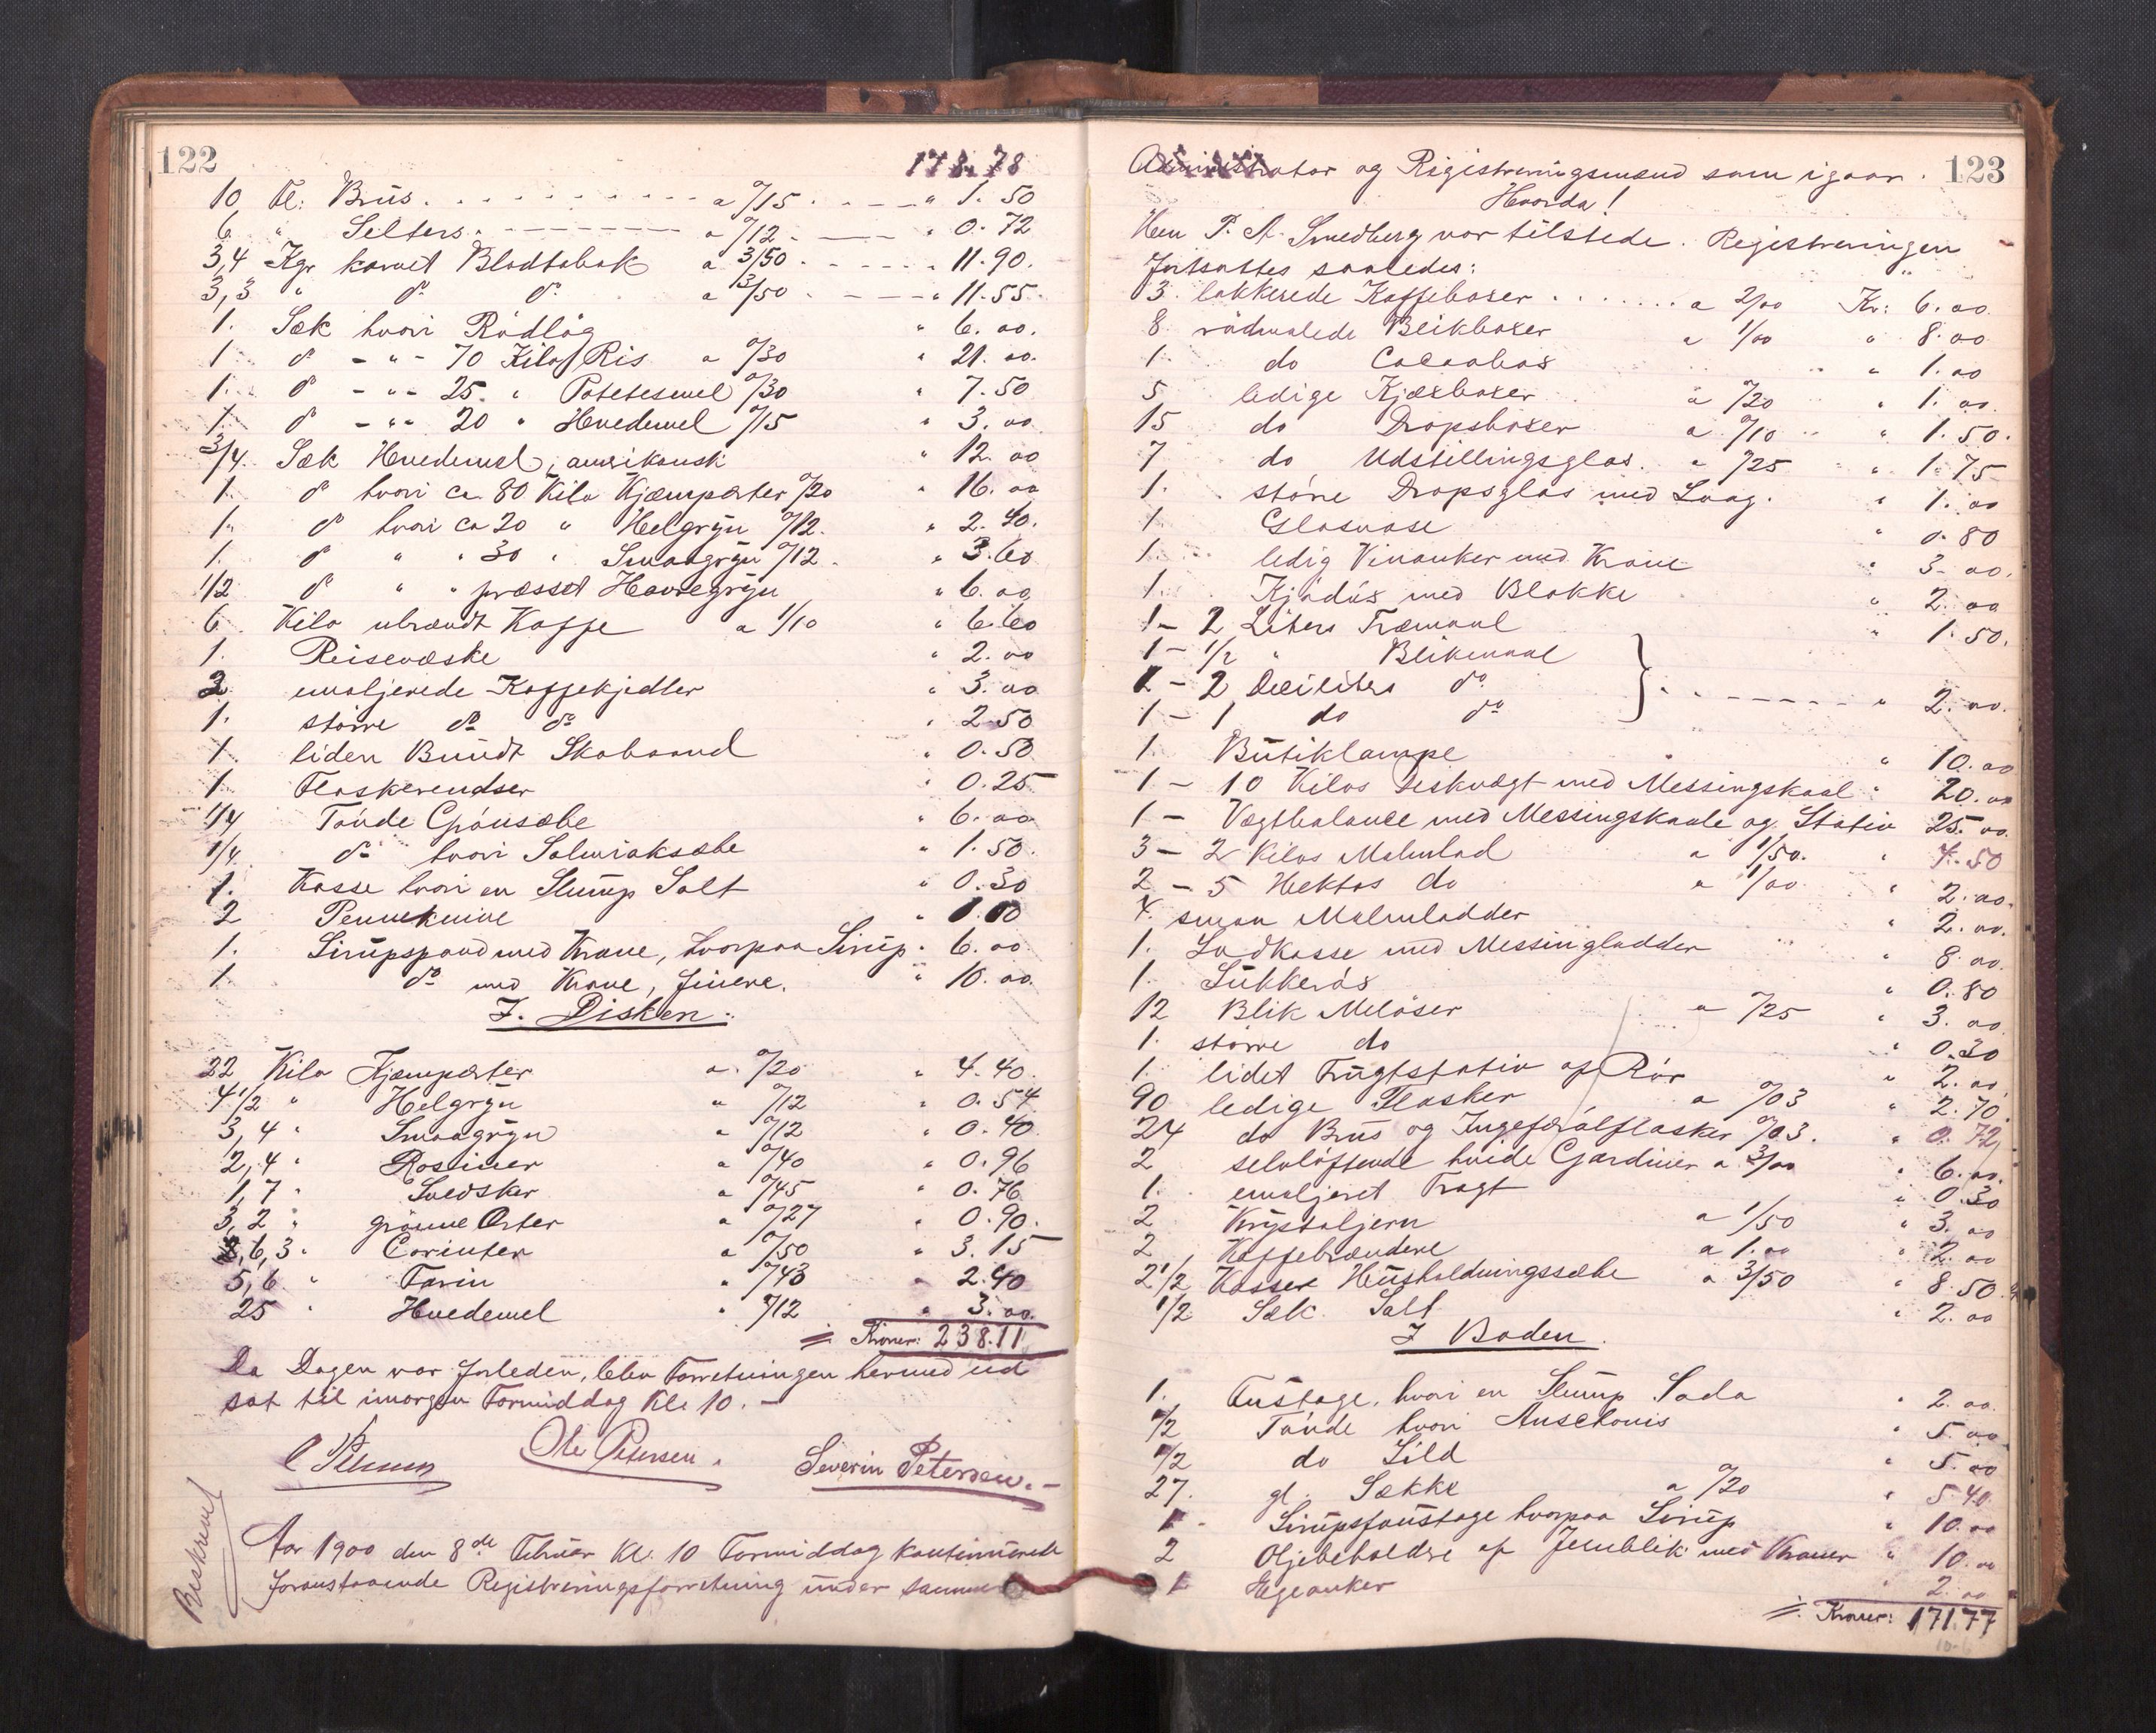 122
178.78
10 Fl: Brus. a 0/15 " 1.50
6 " Selters. a 0/12 " 0.72
3,4 Kgr karvet Bladtobak a 3/50 " 11.90.
3,3 " do do a 3/50 " 11.55
1. Sæk hvori Rødløg " 6.00.
1 do - " - 70 Kilo Ris a 0/30 " 21.00.
1. do - " - 25. " Potetesmel 0/30 " 7.50
1. do - " - 20 " Hvedemel 0/15 " 3.00
3/4. Sæk Hvedemel, amerikansk " 12.00
1. do hvori ca. 80 Kilo Kjæmpeerter 0/20 " 16.00
1. do hvori ca 20 " Helgryn 0/12. " 2.40.
1. do " " 30 " Smaagryn 0/12. " 3.60
1/2 do " " presset Havregryn " 6.00
6 Kilo ubrændt Kaffe a 1/10 " 6.60
1. Reisevæske " 2.00
2 emaljerede Kaffekjedler " 3.00
1. større do do " 2.50
1. liden Bundt Skobaand " 0.50
1. Flaskerendser " 0.25
1/4 Tønde Grønsæbe " 6.00
1/4. do hvori Salmiaksæbe " 1.50
1. Kasse hvori en Slump Salt " 0.30
2 Penneknive " 1.00
1. Sirupspand med Krane, hvorpaa Sirup. 6.00
1. do med Krane, finere. " 10.00.
I. Disken.
22 Kilo Kjæmpeerter a. 0/20 " 4.40.
4 1/2 " Helgryn " 0/12 " 0.54
3,4 " Smaagryn " 0/12 " 0.40
2,4 " Rosiner a 0/40 " 0.96
1,7 " Svedsker a 0/45 " 0.76
3,2 " grønne Erter a 0/27 " 0.90.
6,3 " Corinter a 0/50 " 3.15
5,6 " Farin " 0/43 " 2.40
25 " Hvedemel " 0/12 " 3.00.
Kroner: 238.11
Da Dagen var forleden, blev Forretningen hermed ud
sat til imorgen Formiddag Kl. 10. -
Ole Petersen. Severin Petersen. -
Beskrevet
Aar 1900 den 8de Februar Kl. 10 Formiddag kontinuerede
foranstaaende Registreringsforretning under samme
123
Administrator og Registreringsmænd som igaar.
Hvorda!
Herr P. A. Smedberg var tilstede. Registreringen
fortsattes saaledes:
3. lakkerede Kaffeboxer a 2/00 Kr: 6.00
8 rødmalede Blikboxer a 1/00 " 8.00
1. do Cacaobox " 1.00
5 ledige Kjæxboxer a 0/20 " 1.00.
15 do Dropsboxer a 0/10 " 1.50.
7 do Udstillingsglas. a 0/25 " 1.75
1. større Dropsglas med Laag. " 1.00
1. Glasvase " 0.80
1. ledig Vinanker med Krane " 3.00.
1. Kjødøx med Blokke " 2.00
1 - 2 Liters Træmaal " 1.50.
1 - 1/2 " Blikmaal
1 - 2 Deciliters do " 2.00.
1 - 1 do do
1. Butiklampe " 10.00
1 - 10 Kilos Deskvægt med Messingskaal " 20.00
1 - Vægtbalance med Messingskaale og Stativ 25.00.
3 - 2 Kilos Malmlod a 1/50. " 4.50
2 - 5 Hektos do a 1/00 " 2.00.
4. smaa Malmlodder " 2.00.
1. Lodkasse med Messinglodder " 8.00.
1. Sukkerøx " 0.80
12 Blik Meløser a 0/25 " 3.00
1. større do " 0.30
1. lidet Frugtstativ af Rør " 2.00.
90 ledige Flasker a 0/03 " 2.70.
24 do Brus og Ingefærølflasker 0/03. " 0.72
2 selvløftende hvide Gardiner a 3/00 " 6.00.
1. emaljeret Tragt " 0.30
2 Krystaljern a 1/50 " 3.00
2 Kaffebrændere a 1.00 " 2.00
2 1/2 Kasser Husholdningssæbe a 3/50 " 8.50
1/2 Sæk Salt " 2.00
I Boden.
1. Fustage, hvori en Slump Soda " 2.00.
1/2 Tønde hvori Anschovis " 5.00
1/2 do Sild " 5.00
27. gl. Sække a 0/20 " 5.40
1 - Sirupsfoustage hvorpaa Sirup " 10.00
2 Oljebeholdre af Jernblik med Kraner " 10.00
1 Egeanker " 2.00
Kroner: 171.77